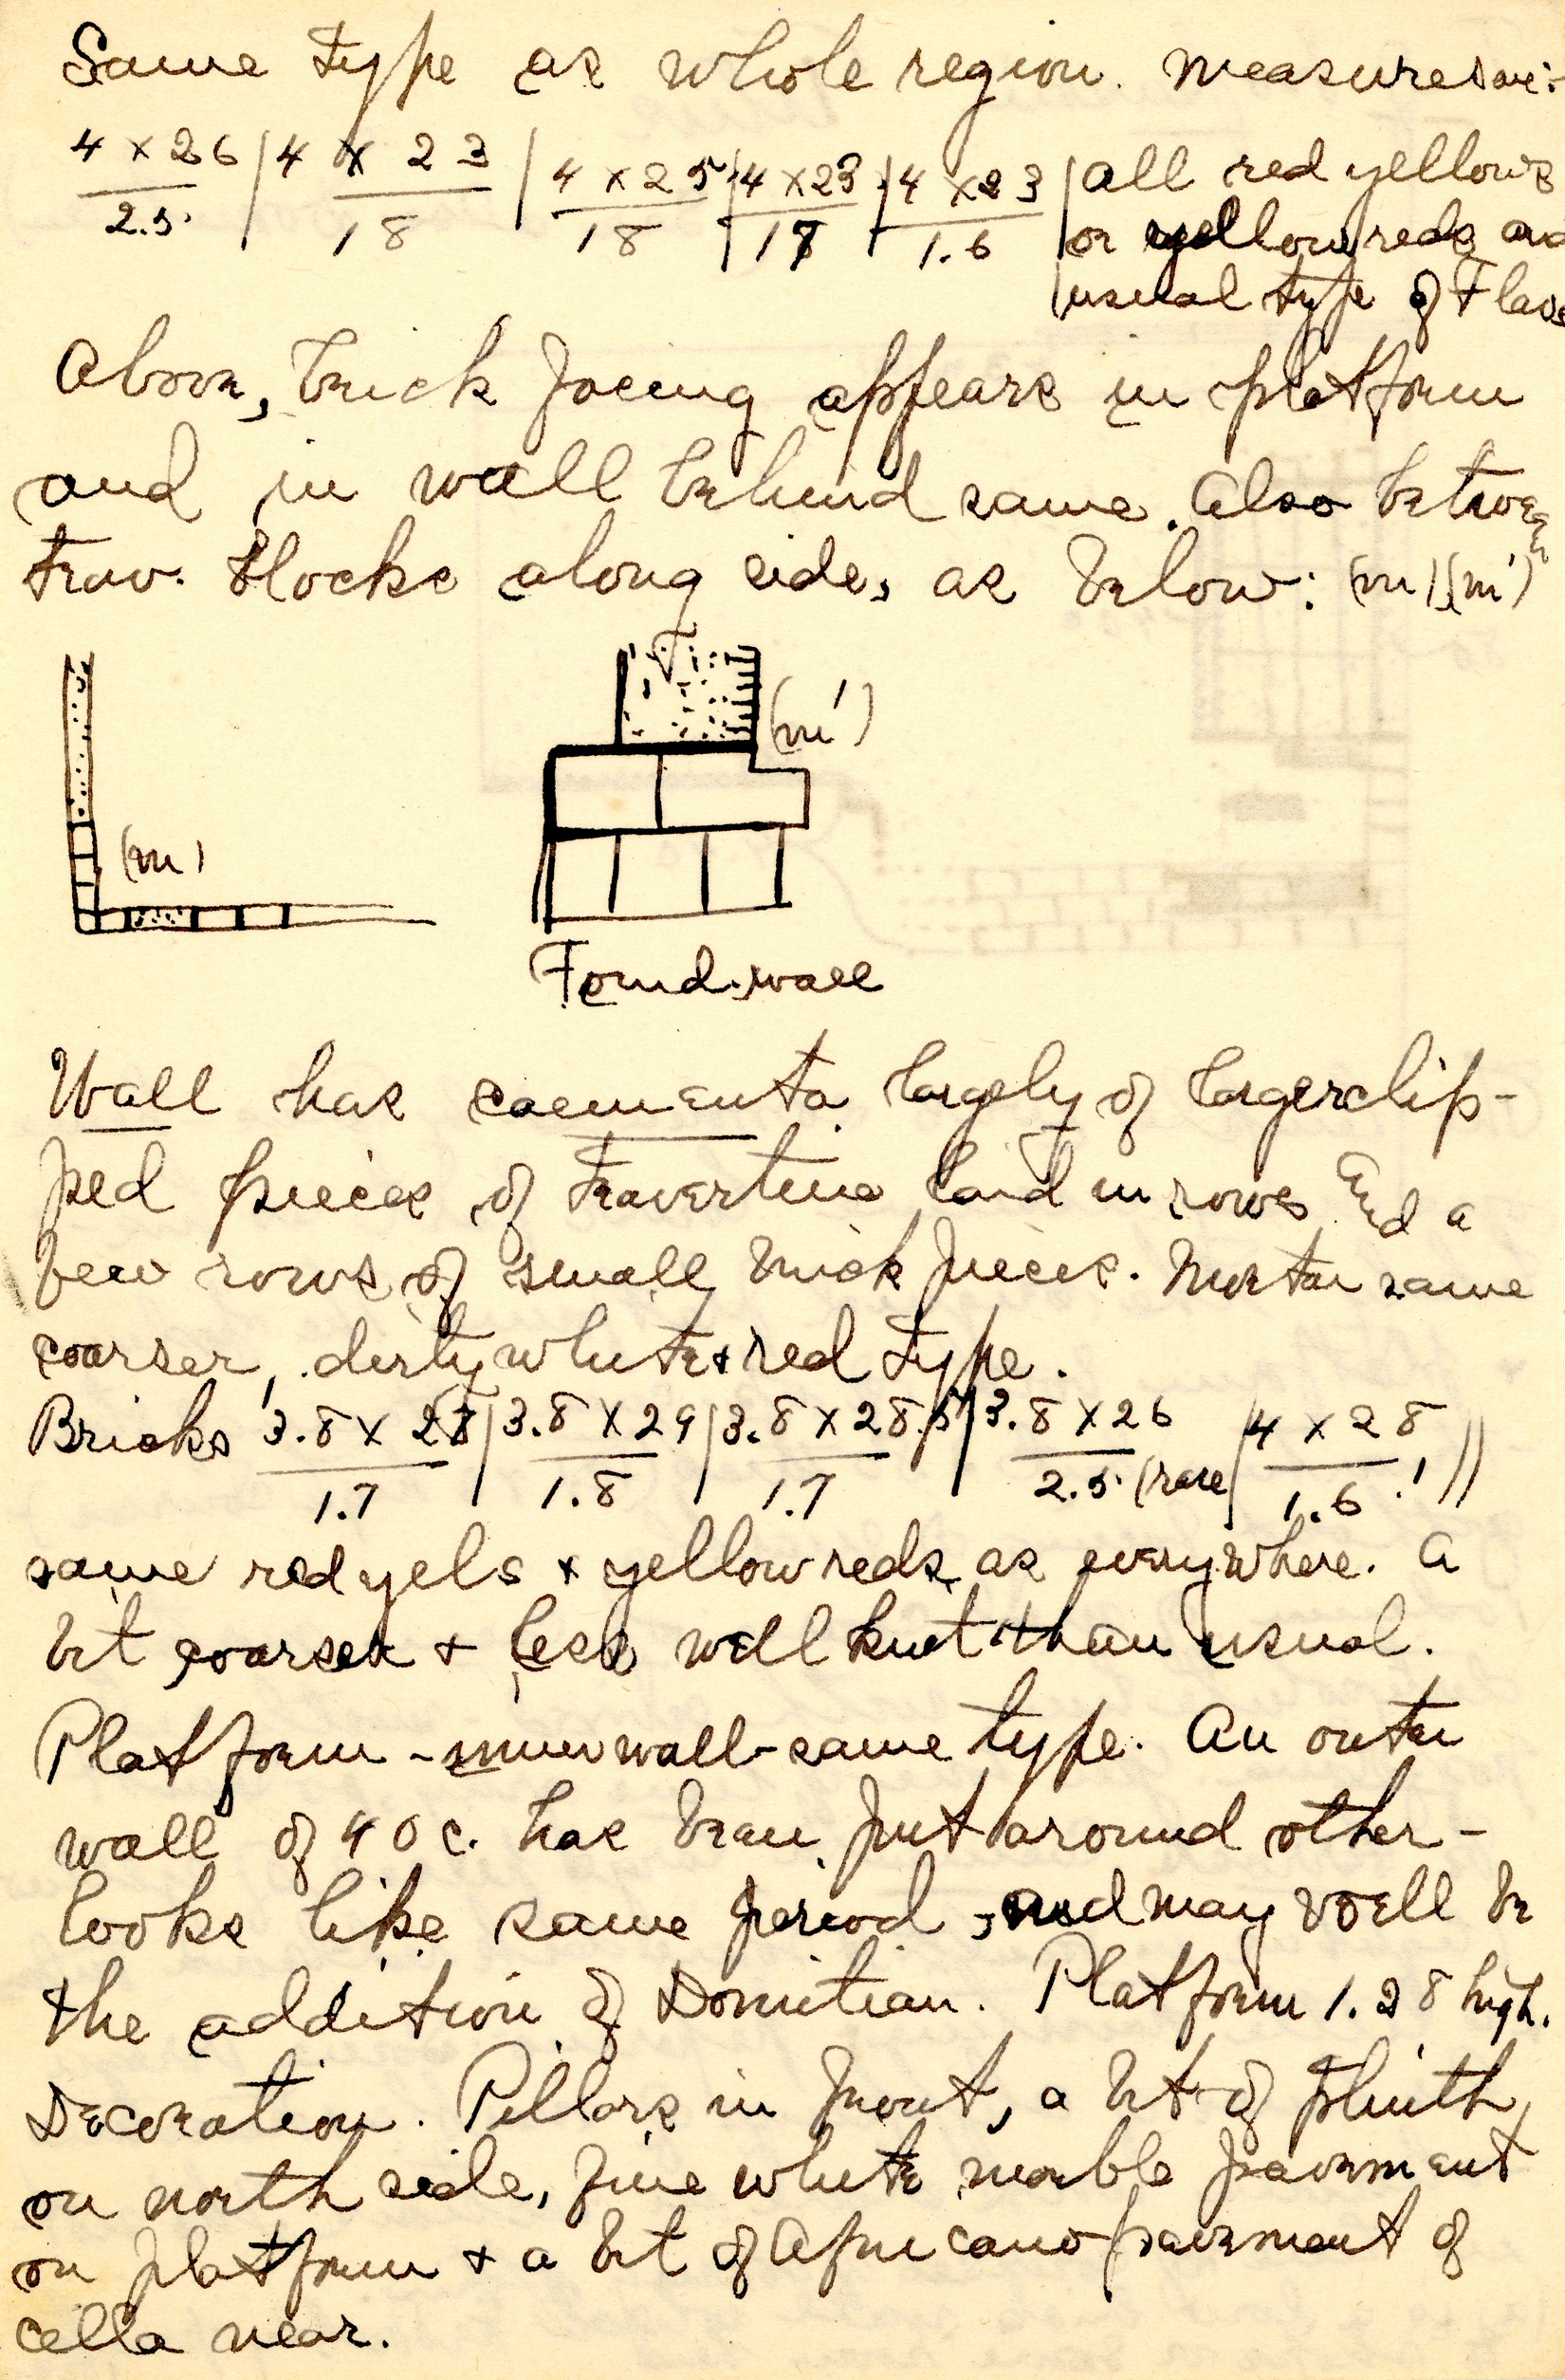 Same type as whole region. Measures are:-
4 x 26 / 2.5 | 4 x 23 / 18 | 4 x 25 / 18 | 4 x 23 / 17 | 4 x 23 / 1.6 | all red yellows
or yellow reds and
usual type of Flav
Above, brick facing appears in platform
and in wall behind same. Also between
trav. blocks along side, as below: (m) (m')
(m')
(m)
Found. wall
Wall has caementa largely of larger clip-
ped pieces of travertine laid in rows and a
few rows of small brick pieces. Mortar same
coarser, dirty white & red type.
Bricks 3.8 x 28 / 1.7 | 3.8 x 29 / 1.8 | 3.8 x 28.5 / 1.7 | 3.8 x 26 / 2.5 (rare | 4 x 28 / 1.6 ! ||
same red yels & yellow reds as everywhere. A
bit coarser & less well knit than usual.
Platform - inner wall - same type. An outer
wall of 40 c. has been put around other -
looks like same period, and may well be
the addition of Domitian. Platform 1.28 high.
Decoration. Pillars in front, a bit of plinth,
on north side, fine white marble pavement
on platform & a bit of Africano pavement of
cella near.